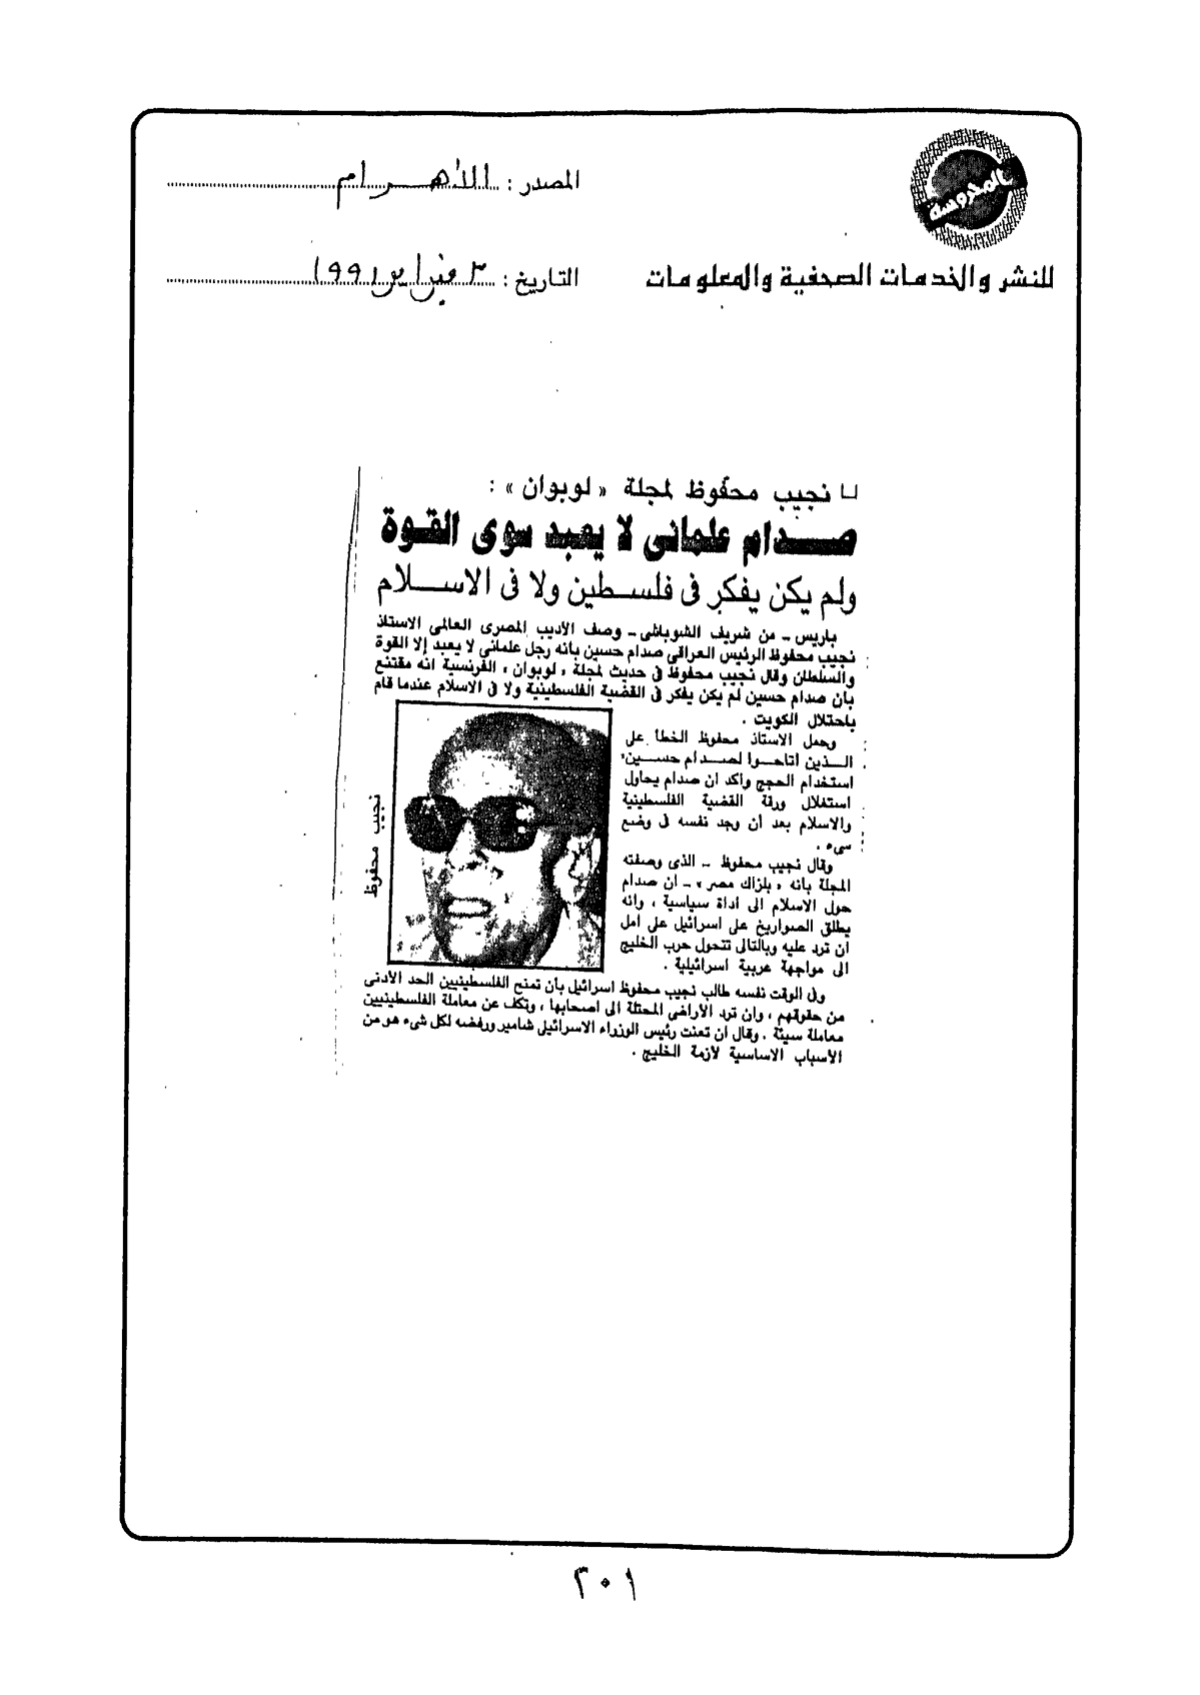 المحروسة
للنشر والخدمات الصحفية والمعلومات
المصدر : الأهرام
التاريخ : ٣ فبراير ١٩٩١
نجيب محفوظ لمجلة « لوبوان » :
صدام علمانى لا يعبد سوى القوة
ولم يكن يفكر فى فلسطين ولا فى الاسلام
باريس - من شريف الشوباشى - وصف الأديب المصرى العالمى الاستاذ
نجيب محفوظ الرئيس العراقى صدام حسين بانه رجل علمانى لا يعبد إلا القوة
والسلطان وقال نجيب محفوظ فى حديث لمجلة « لوبوان » الفرنسية انه مقتنع
بأن صدام حسين لم يكن يفكر فى القضية الفلسطينية ولا فى الاسلام عندما قام
باحتلال الكويت .
وحمل الاستاذ محفوظ الخطأ على
الذين اتاحوا لصدام حسين
استخدام الحجج واكد ان صدام يحاول
استغلال ورقة القضية الفلسطينية
والاسلام بعد أن وجد نفسه فى وضع
سىء .
وقال نجيب محفوظ - الذى وصفته
المجلة بانه « بلزاك مصر » - ان صدام
حول الاسلام الى اداة سياسية ، وانه
يطلق الصواريخ على اسرائيل على امل
ان ترد عليه وبالتالى تتحول حرب الخليج
الى مواجهة عربية اسرائيلية .
نجيب محفوظ
وفى الوقت نفسه طالب نجيب محفوظ اسرائيل بأن تمنح الفلسطينيين الحد الأدنى
من حقوقهم ، وان ترد الأراضى المحتلة الى اصحابها ، وتكف عن معاملة الفلسطينيين
معاملة سيئة . وقال ان تعنت رئيس الوزراء الاسرائيلى شامير ورفضه لكل شىء هو من
الأسباب الاساسية لأزمة الخليج .
٢٠١